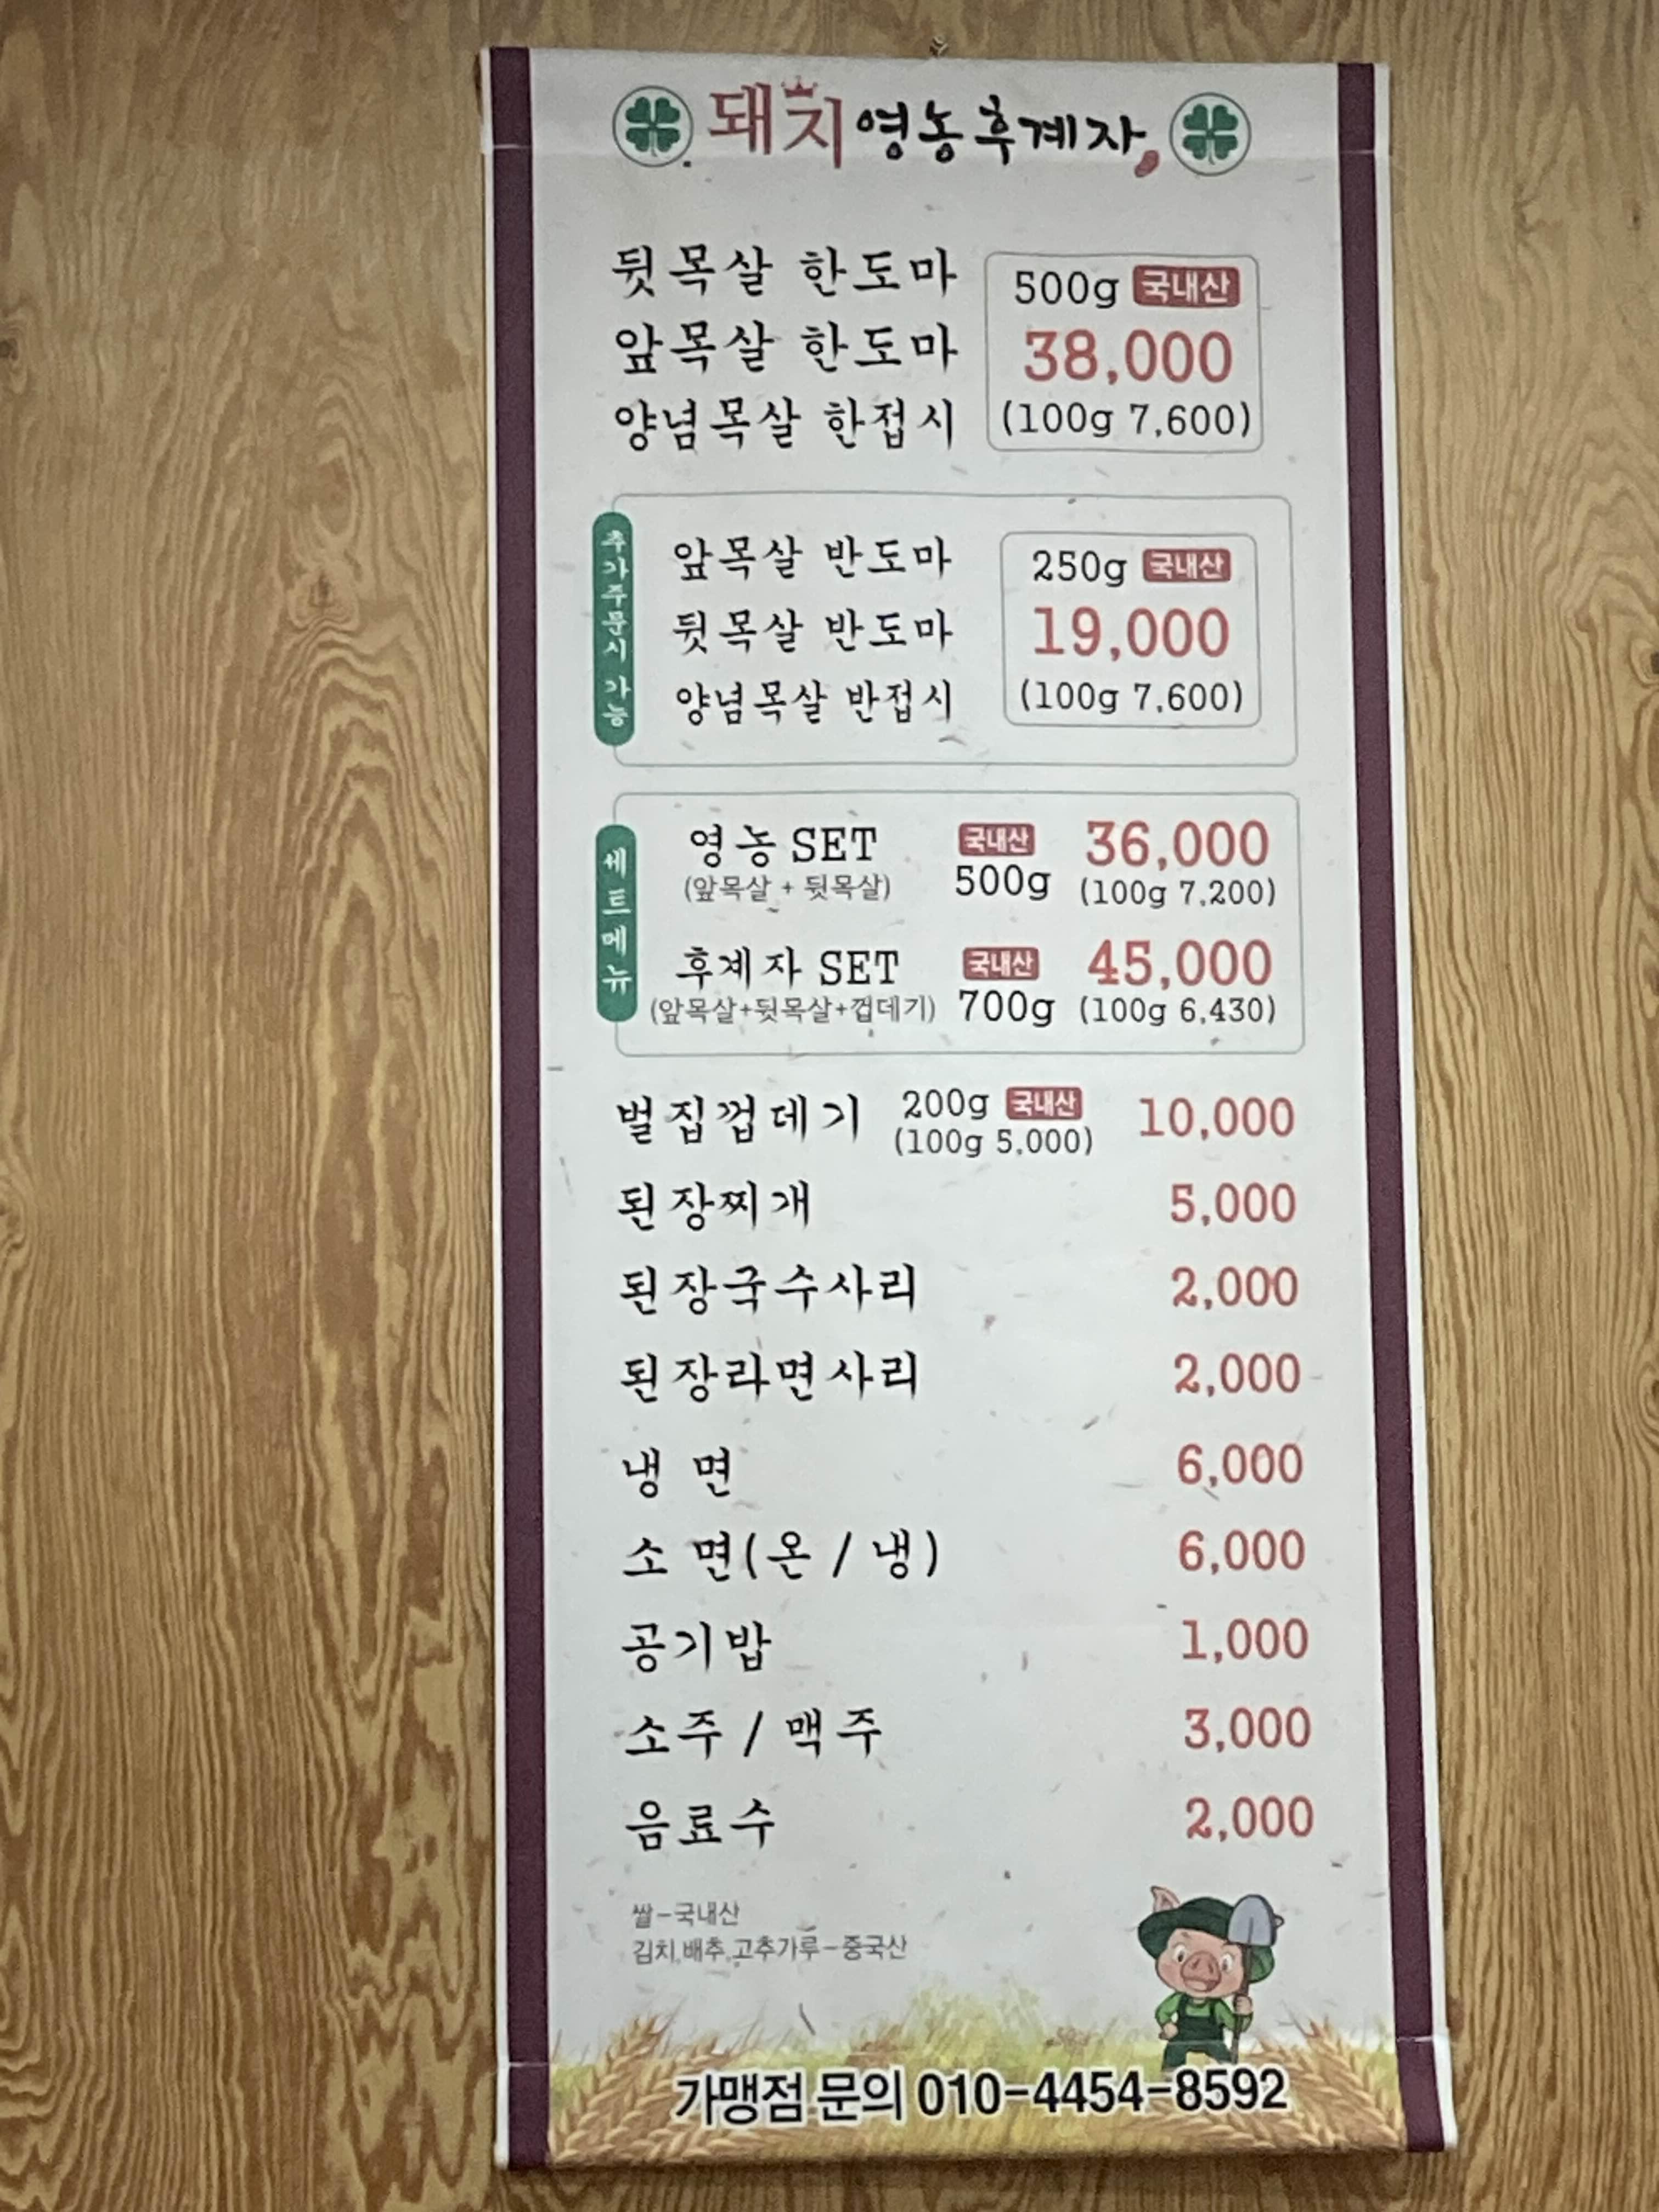 돼지영농후계자
뒷목살 한도마
앞목살 한도마
양념목살 한접시
500g 국내산
38,000
(100g 7,600)
추가주문시 가능
앞목살 반도마
뒷목살 반도마
양념목살 반접시
250g 국내산
19,000
(100g 7,600)
세트메뉴
영농 SET 국내산 36,000
(앞목살 + 뒷목살) 500g (100g 7,200)
후계자 SET 국내산 45,000
(앞목살+뒷목살+껍데기) 700g (100g 6,430)
벌집껍데기 200g 국내산 10,000
(100g 5,000)
된장찌개 5,000
된장국수사리 2,000
된장라면사리 2,000
냉 면 6,000
소 면(온 / 냉) 6,000
공기밥 1,000
소주 / 맥주 3,000
음료수 2,000
쌀-국내산
김치,배추,고추가루-중국산
가맹점 문의 010-4454-8592